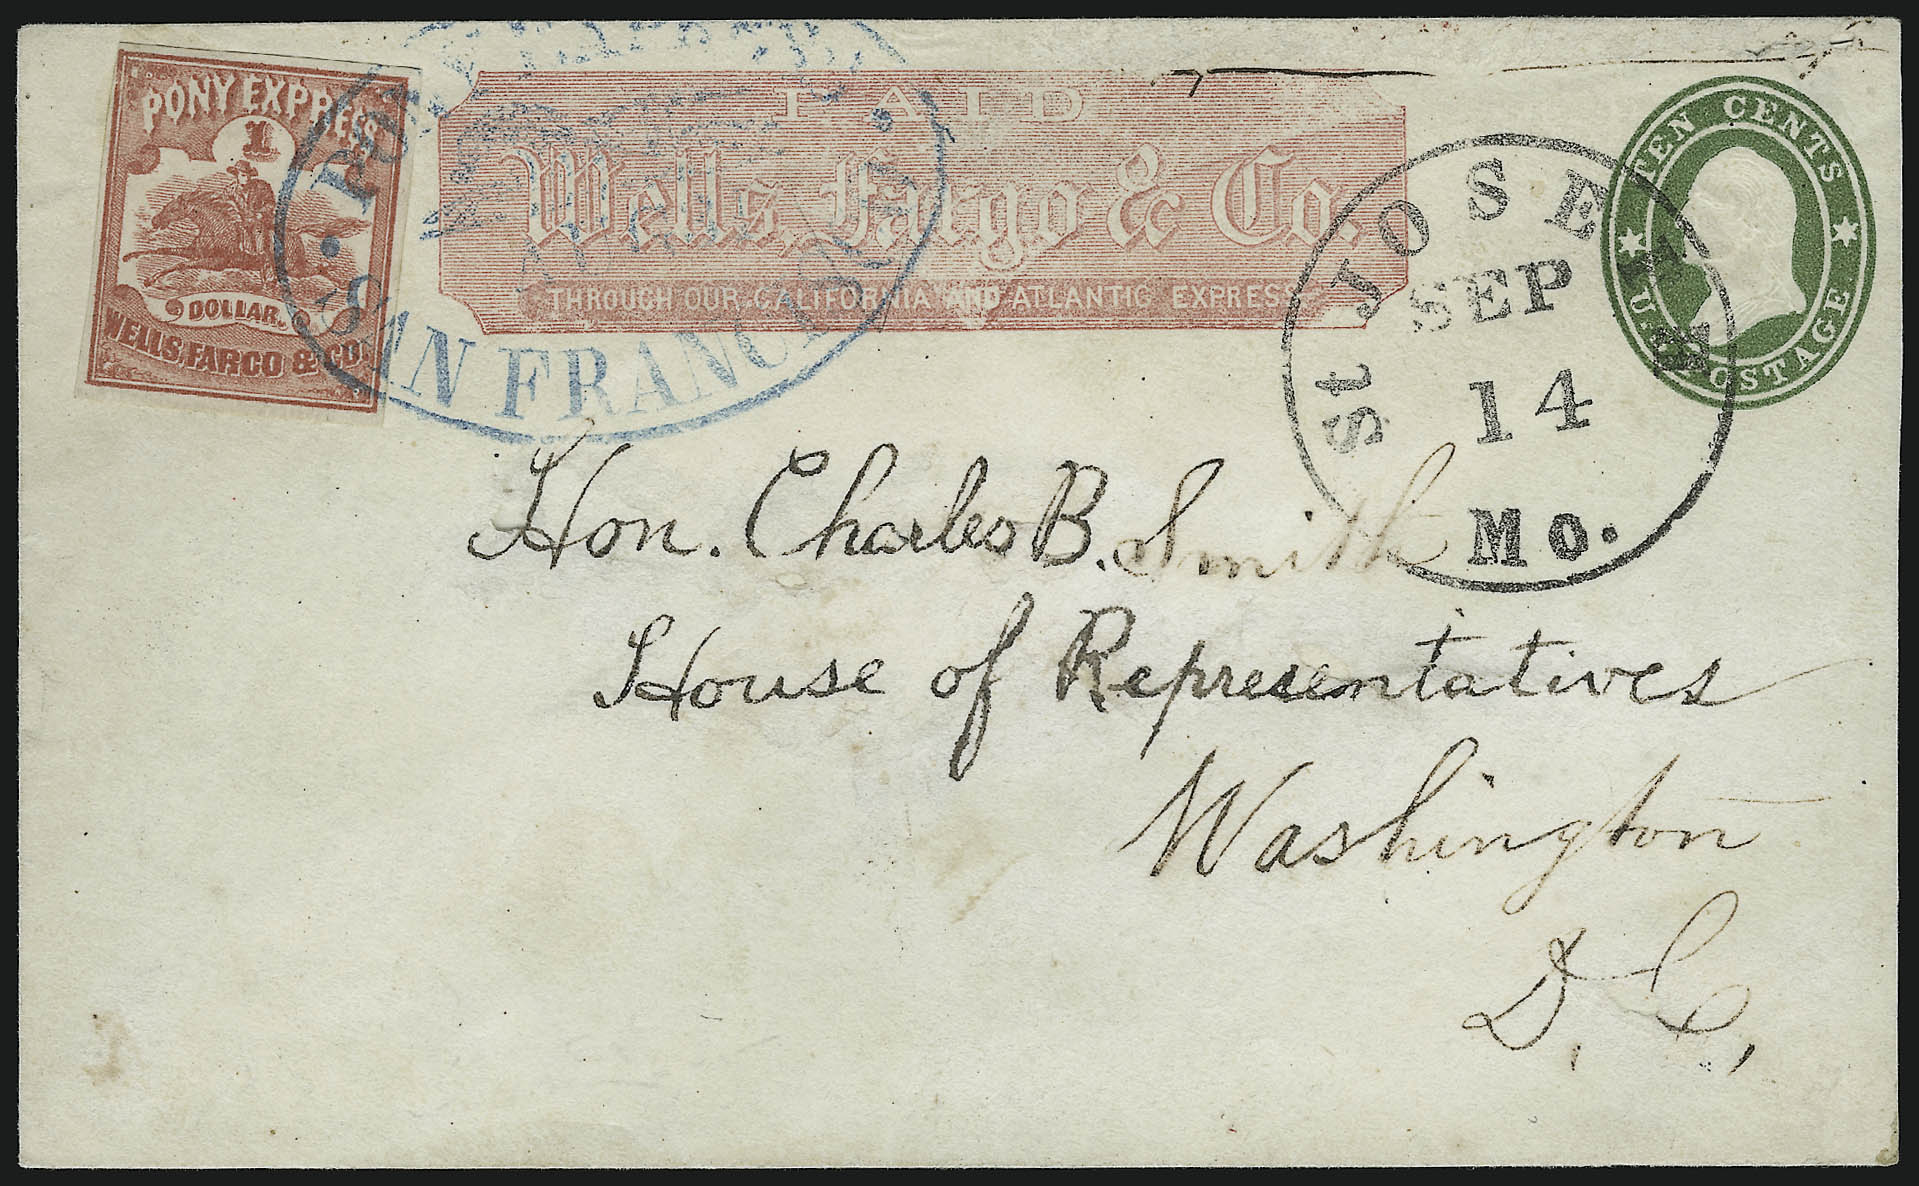 PONY EXPRESS
1
DOLLAR.
WELLS, FARGO & CO.
PAID
Wells, Fargo & Co.
THROUGH OUR CALIFORNIA AND ATLANTIC EXPRESS
PONY EXPRESS
SAN FRANCISCO
St JOSEPH
SEP
14
MO.
TEN CENTS
U.S. POSTAGE
Hon. Charles B. Smith
House of Representatives
Washington
D. C.,